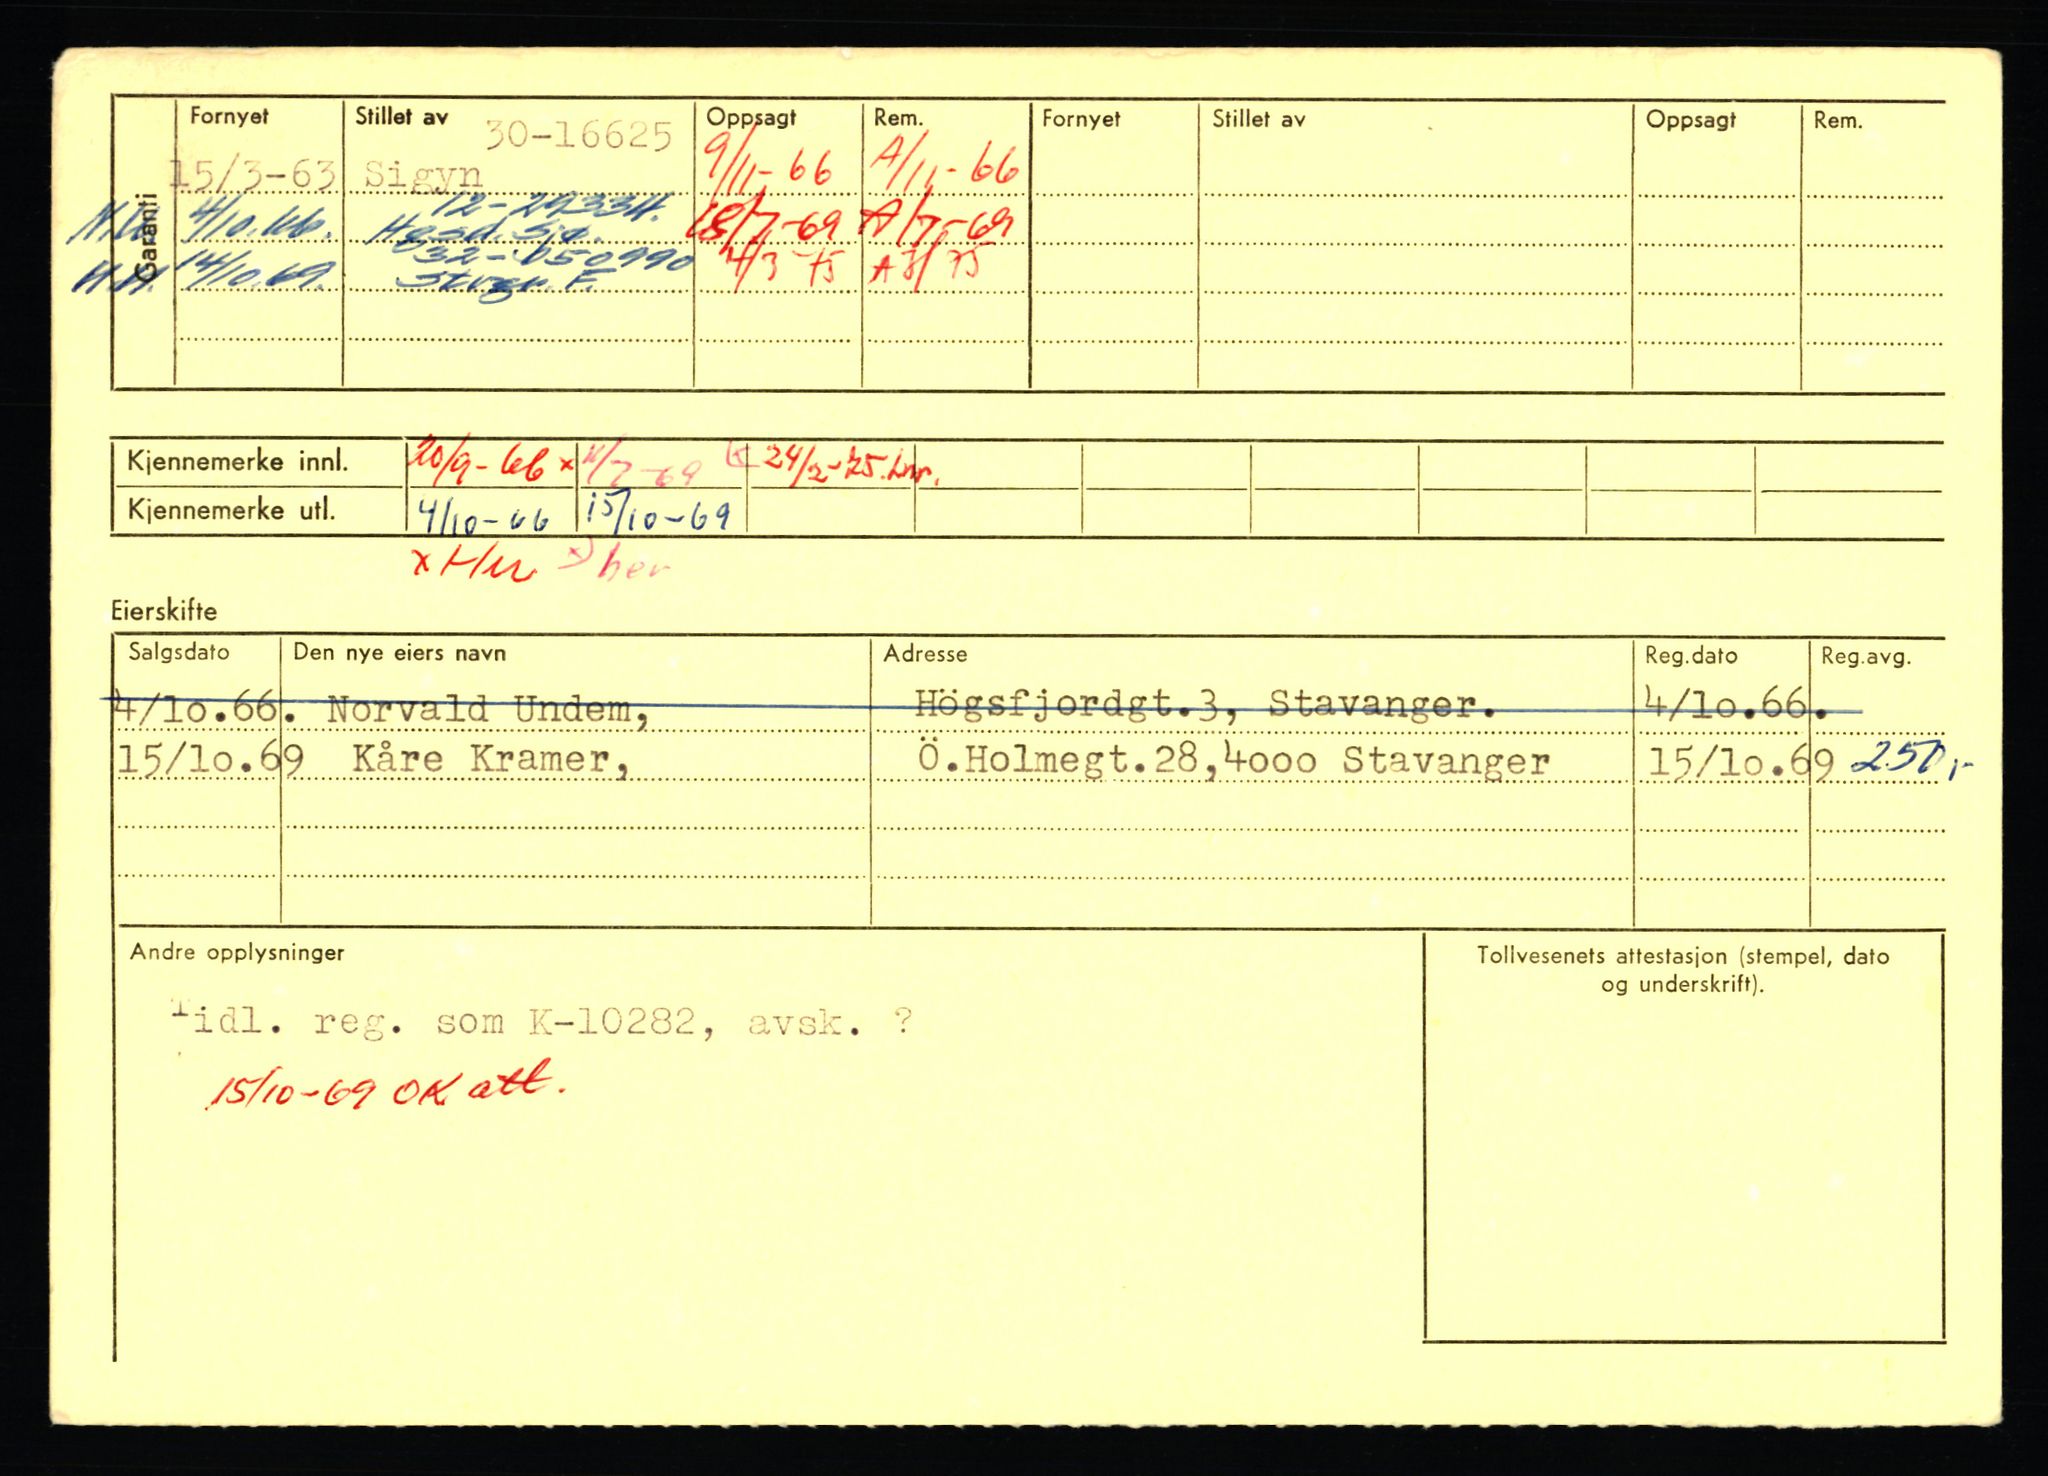 Garanti
Fornyet Stillet av Oppsagt Rem. Fornyet Stillet av Oppsagt Rem.
30-16625
15/3-63 Sigyn 9/11-66 A/11-66
12-29334.
4/10.66. Hgsd. Sjø. 18/7-69 A/7-69
14/10.69. 4/3 75 A 3/75
Kjennemerke innl. 20/9-66 x 24/2-75.
Kjennemerke utl. 4/10-66 15/10-69
x x) her
Eierskifte
Salgsdato Den nye eiers navn Adresse Reg.dato Reg.avg.
4/1o.66. Norvald Undem, Högsfjordgt.3, Stavanger. 4/1o.66.
15/1o.69 Kåre Kramer, Ö.Holmegt.28,4ooo Stavanger 15/1o.69 250,-
Andre opplysninger
Tollvesenets attestasjon (stempel, dato
og underskrift).
Tidl. reg. som K-10282, avsk. ?
15/10-69 OK att.